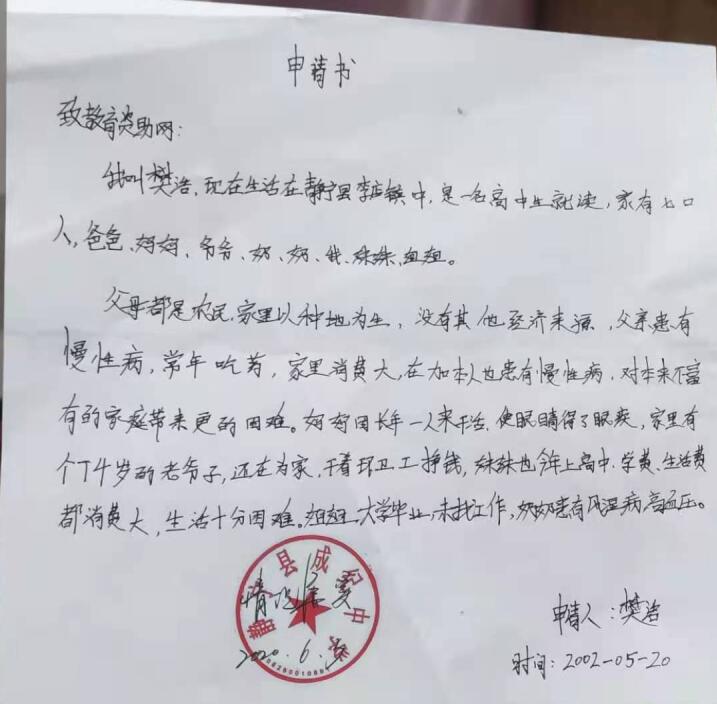 申请书
致教育资助网：
我叫樊浩，现在生活在静宁县李店镇中，是一名高中生就读，家有七口
人，爸爸、妈妈、爷爷、奶、奶、我、妹妹、姐姐。
父母都是农民，家里以种地为生，没有其他经济来源，父亲患有
慢性病，常年吃药，家里消费大，在加本人也患有慢性病，对本来不富
有的家庭带来更的困难。妈妈因长年一人来干活，使眼睛得了眼疾，家里有
个74岁的老爷子，还在为家，干着环卫工挣钱，妹妹也上高中，学费、生活费
都消费大，生活十分困难。姐姐大学毕业，未找工作，奶奶患有风湿病高血压。
静宁县成纪中学
情况属实
2020.6.
申请人：樊浩
时间：2002-05-20